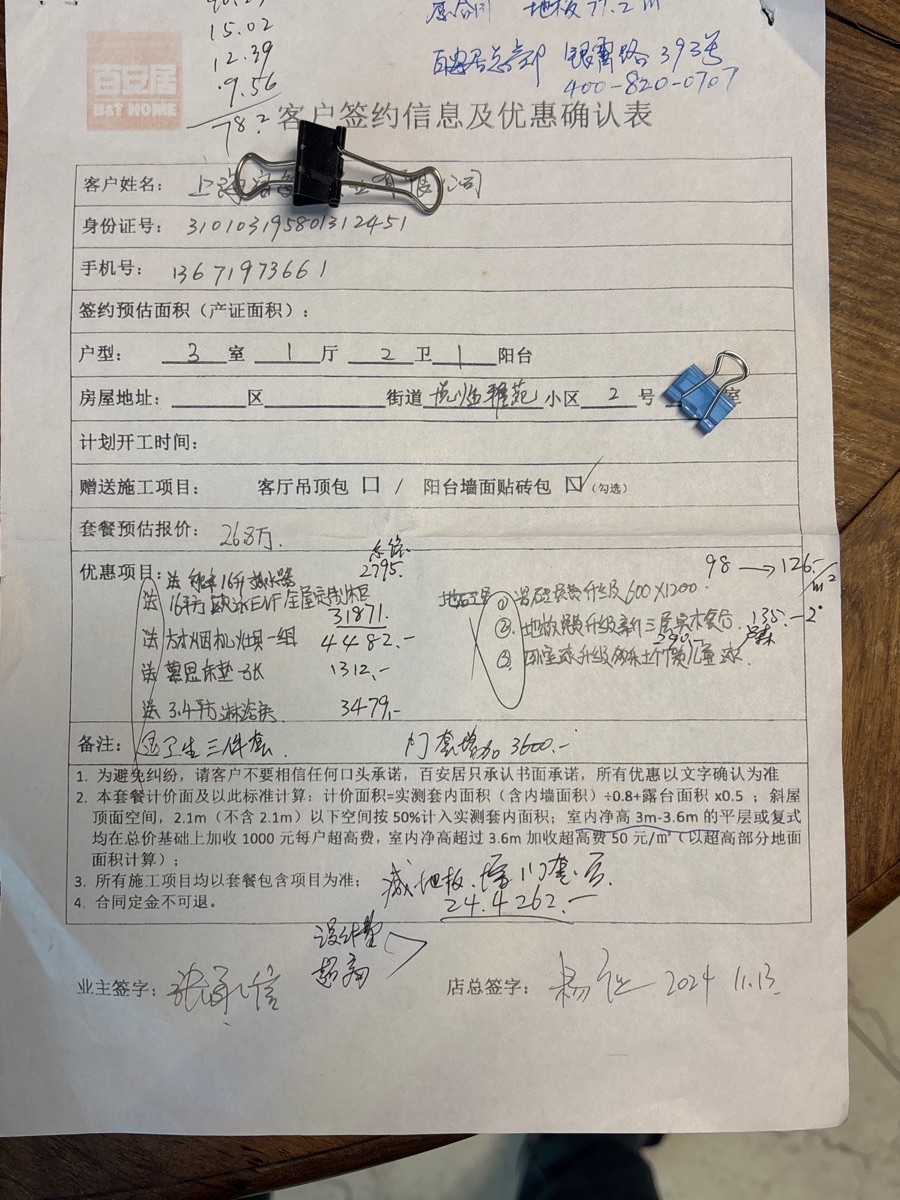 15.02
12.39
9.56
78.2
地板77.2m
百安居总部 银霄路393号
400-820-0707
百安居
B&T HOME
客户签约信息及优惠确认表
客户姓名： 上海 有限公司
身份证号： 310103195801312451
手机号： 13671973661
签约预估面积（产证面积）：
户型： 3 室 1 厅 2 卫 1 阳台
房屋地址： 区 街道 雅苑 小区 2 号 室
计划开工时间：
赠送施工项目： 客厅吊顶包 口 / 阳台墙面贴砖包 ☑ （勾选）
套餐预估报价： 26.8万.
2795.
98 → 126.-/m²
优惠项目： 送 16升热水器
送 16平方 ENF全屋定制柜
31871.
送 方太烟机灶具一组 4482.-
送 慕思床垫一张 1312.-
送 3.4平方淋浴房 3479.-
① 升级600X1200
② 地板 升级新三层实木复合. 135.-
③ 卧室 升级 儿童漆
备注： 卫生三件套. 门套增加3600.-
1. 为避免纠纷，请客户不要相信任何口头承诺，百安居只承认书面承诺，所有优惠以文字确认为准
2. 本套餐计价面及以此标准计算：计价面积=实测套内面积（含内墙面积）÷0.8+露台面积 x0.5 ；斜屋
顶面空间，2.1m（不含 2.1m）以下空间按 50%计入实测套内面积；室内净高 3m-3.6m 的平层或复式
均在总价基础上加收 1000 元每户超高费，室内净高超过 3.6m 加收超高费 50 元/㎡（以超高部分地面
面积计算）；
3. 所有施工项目均以套餐包含项目为准；
减地板.增门套.后.
4. 合同定金不可退。
24.4262.-
设计费
超高
业主签字：
店总签字： 2024 11.13